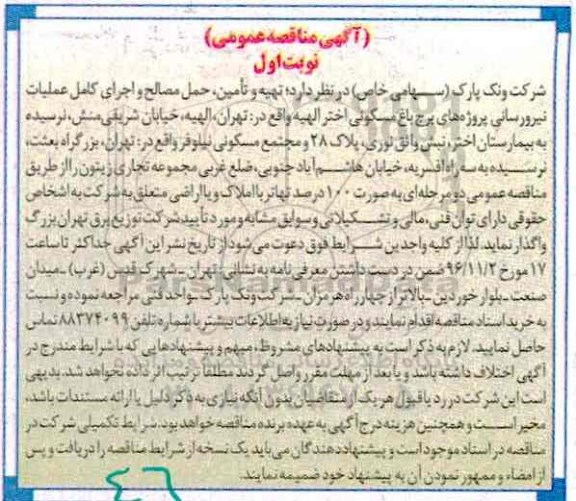 (آگهی مناقصه عمومی)
نوبت اول
شرکت ونک پارک (سهامی خاص) در نظر دارد؛ تهیه و تأمین، حمل مصالح و اجرای کامل عملیات
نیرورسانی پروژه‌های برج باغ مسکونی اختر الهیه واقع در: تهران، الهیه، خیابان شریفی‌منش، نرسیده
به بیمارستان اختر، نبش واثق نوری، پلاک ۲۸ و مجتمع مسکونی نیلوفر واقع در: تهران، بزرگراه بعثت،
نرسیده به سه راه افسریه، خیابان هاشم‌آباد جنوبی، ضلع غربی مجموعه تجاری زیتون را از طریق
مناقصه عمومی دو مرحله‌ای به صورت ۱۰۰ درصد تهاتر با املاک و یا اراضی متعلق به شرکت به اشخاص
حقوقی دارای توان فنی، مالی و تشکیلاتی و سوابق مشابه و مورد تأیید شرکت توزیع برق تهران بزرگ
واگذار نماید. لذا از کلیه واجدین شرایط فوق دعوت می‌شود از تاریخ نشر این آگهی حداکثر تا ساعت
۱۷ مورخ ۹۶/۱۱/۲ ضمن در دست داشتن معرفی نامه به نشانی: تهران ـ شهرک قدس (غرب) ـ میدان
صنعت ـ بلوار خوردین ـ بالاتر از چهارراه هرمزان ـ شرکت ونک پارک ـ واحد فنی مراجعه نموده و نسبت
به خرید اسناد مناقصه اقدام نمایند و در صورت نیاز به اطلاعات بیشتر با شماره تلفن ۸۸۳۷۴۰۹۹ تماس
حاصل نمایید. لازم به ذکر است به پیشنهادهای مشروط، مبهم و پیشنهادهایی که با شرایط مندرج در
آگهی اختلاف داشته باشد و یا بعد از مهلت مقرر واصل گردند مطلقاً ترتیب اثر داده نخواهد شد. بدیهی
است این شرکت در رد یا قبول هر یک از متقاضیان بدون آنکه نیازی به ذکر دلیل یا ارائه مستندات باشد،
مخیر است و همچنین هزینه درج آگهی به عهده برنده مناقصه خواهد بود. شرایط تکمیلی شرکت در
مناقصه در اسناد موجود است و پیشنهاددهندگان می‌باید یک نسخه از شرایط مناقصه را دریافت و پس
از امضاء و ممهور نمودن آن به پیشنهاد خود ضمیمه نمایند.
ParsNamadData